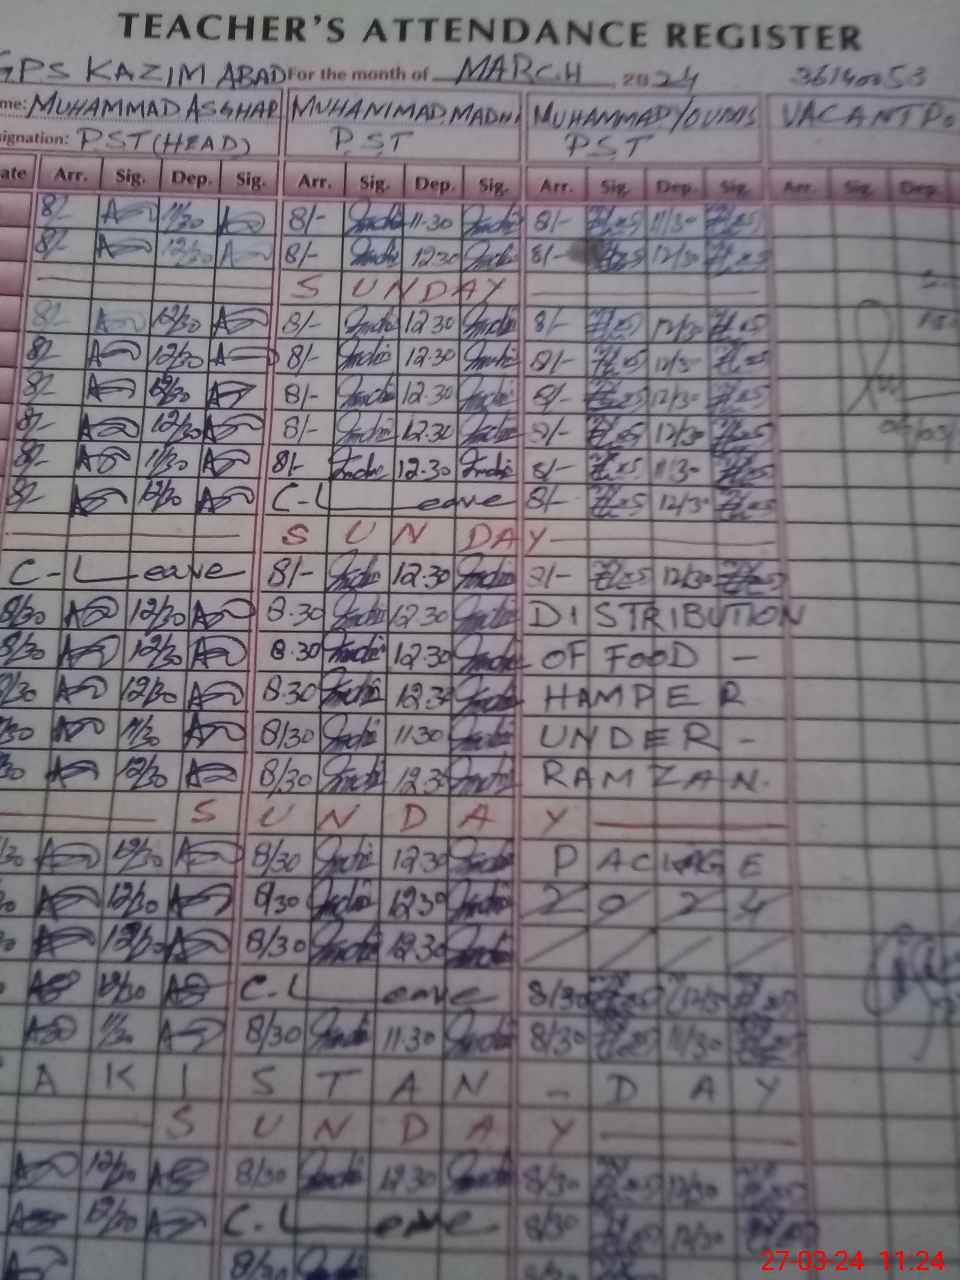 TEACHER'S ATTENDANCE REGISTER
GPS KAZIM ABAD For the month of MARCH 2024 36140053
me: MUHAMMAD ASGHAR MUHAMMAD MADHI MUHAMMAD YOUNAS VACANT Po
signation: PST (HEAD) PST PST
ate Arr. Sig. Dep. Sig. Arr. Sig. Dep. Sig. Arr. Sig. Dep. Sig. Arr. Sig. Dep.
8/- 11/30 8/- 11.30 8/- 11/30
8/- 12/30 8/- 1230 8/- 12/30
SUNDAY
8/- 12/30 8/- 12 30 8/- 12/30
8/- 12/30 8/- 12.30 8/- 12/30
8/- 12/30 8/- 12.30 8/- 12/30
8/- 12/30 8/- 12.30 8/- 12/30
8/- 11/30 8/- 12.30 8/- 11/30
8/- 12/30 C-Leave 8/- 12/30
SUNDAY
C-Leave 8/- 12.30 8/- 12/30
8/30 12/30 8.30 12.30 DISTRIBUTION
8/30 12/30 8.30 12.30 OF FOOD -
8/30 12/30 8.30 12.30 HAMPER
/30 11/30 8/30 11.30 UNDER -
30 12/30 8/30 12.30 RAMZAN.
SUNDAY
/30 12/30 8/30 12.30 PACKAGE
12/30 8/30 12.30 2024
12/30 8/30 12.30
12/30 C.Leave 8/30 12/30
11/30 8/30 11.30 8/30 11/30
AKISTAN - DAY
SUNDAY
12/30 8/30 12.30 8/30 12/30
12/30 C.Leave 8/30 12/30
8/30
27-03-24 11:24